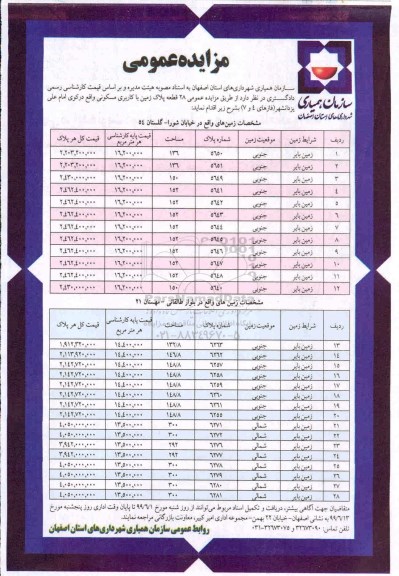 مزایده عمومی
سازمان همیاری
شهرداری‌های استان اصفهان
سازمان همیاری شهرداری‌های استان اصفهان به استناد مصوبه هیئت مدیره و بر اساس قیمت کارشناسی رسمی
دادگستری در نظر دارد از طریق مزایده عمومی ۲۸ قطعه پلاک زمین با کاربری مسکونی واقع در کوی امام علی
یزدانشهر (فازهای ۴ و ۷) بشرح زیر اقدام نماید:
مشخصات زمین‌های واقع در خیابان شورا- گلستان ۵۴
ردیف شرایط زمین موقعیت زمین شماره پلاک مساحت قیمت پایه کارشناسی هر متر مربع قیمت کل هر پلاک
۱ زمین بایر جنوبی ۵۶۵۰ ۱۳۶ ۱۶,۲۰۰,۰۰۰ ۲,۲۰۳,۲۰۰,۰۰۰
۲ زمین بایر جنوبی ۵۶۵۱ ۱۳۶ ۱۶,۲۰۰,۰۰۰ ۲,۲۰۳,۲۰۰,۰۰۰
۳ زمین بایر جنوبی ۵۶۴۹ ۱۶,۲۰۰,۰۰۰
۴ زمین بایر جنوبی ۵۶۴۱ ۱۵۲ ۱۶,۲۰۰,۰۰۰ ۲,۴۶۲,۴۰۰,۰۰۰
۵ زمین بایر جنوبی ۵۶۴۲ ۱۵۲ ۱۶,۲۰۰,۰۰۰ ۲,۴۶۲,۴۰۰,۰۰۰
۶ زمین بایر جنوبی ۵۶۴۳ ۱۵۲ ۱۶,۲۰۰,۰۰۰ ۲,۴۶۲,۴۰۰,۰۰۰
۷ زمین بایر جنوبی ۵۶۴۴ ۱۵۲ ۱۶,۲۰۰,۰۰۰ ۲,۴۶۲,۴۰۰,۰۰۰
۸ زمین بایر جنوبی ۵۶۴۵ ۱۵۲ ۱۶,۲۰۰,۰۰۰ ۲,۴۶۲,۴۰۰,۰۰۰
۹ زمین بایر جنوبی ۵۶۴۶ ۱۵۲ ۱۶,۲۰۰,۰۰۰ ۲,۴۶۲,۴۰۰,۰۰۰
۱۰ زمین بایر جنوبی ۵۶۴۷ ۱۵۲ ۱۶,۲۰۰,۰۰۰ ۲,۴۶۲,۴۰۰,۰۰۰
۱۱ زمین بایر جنوبی ۵۶۴۸ ۱۵۲ ۱۶,۲۰۰,۰۰۰ ۲,۴۶۲,۴۰۰,۰۰۰
۱۲ زمین بایر جنوبی ۵۶۴۰ ۱۵۰ ۱۶,۲۰۰,۰۰۰ ۲,۴۳۰,۰۰۰,۰۰۰
مشخصات زمین های واقع در بلوار طالقانی - نهستان ۲۱
ردیف شرایط زمین موقعیت زمین شماره پلاک مساحت قیمت پایه کارشناسی هر متر مربع قیمت کل هر پلاک
۱۳ زمین بایر جنوبی ۶۲۶۳ ۱۴,۴۰۰,۰۰۰
۱۴ زمین بایر جنوبی ۶۲۶۲ ۱۴۶/۸ ۱۴,۴۰۰,۰۰۰ ۲,۱۱۳,۹۲۰,۰۰۰
۱۵ زمین بایر جنوبی ۶۲۵۷ ۱۴۸/۸ ۱۴,۴۰۰,۰۰۰ ۲,۱۴۲,۷۲۰,۰۰۰
۱۶ زمین بایر جنوبی ۶۲۵۸ ۱۴۸/۸ ۱۴,۴۰۰,۰۰۰ ۲,۱۴۲,۷۲۰,۰۰۰
۱۷ زمین بایر جنوبی ۶۲۵۹ ۱۴۸/۸ ۱۴,۴۰۰,۰۰۰ ۲,۱۴۲,۷۲۰,۰۰۰
۱۸ زمین بایر جنوبی ۶۲۶۰ ۱۴۸/۸ ۱۴,۴۰۰,۰۰۰ ۲,۱۴۲,۷۲۰,۰۰۰
۱۹ زمین بایر جنوبی ۶۲۶۱ ۱۴۸/۸ ۱۴,۴۰۰,۰۰۰ ۲,۱۴۲,۷۲۰,۰۰۰
۲۰ زمین بایر جنوبی ۶۲۵۵ ۱۴۸/۸ ۱۴,۴۰۰,۰۰۰ ۲,۱۴۲,۷۲۰,۰۰۰
۲۱ زمین بایر شمالی ۶۲۷۱ ۳۰۰ ۱۳,۵۰۰,۰۰۰ ۴,۰۵۰,۰۰۰,۰۰۰
۲۲ زمین بایر شمالی ۶۲۷۲ ۳۰۰ ۱۳,۵۰۰,۰۰۰ ۴,۰۵۰,۰۰۰,۰۰۰
۲۳ زمین بایر شمالی ۶۲۷۶ ۲۹۲ ۱۳,۵۰۰,۰۰۰ ۳,۹۴۲,۰۰۰,۰۰۰
۲۴ زمین بایر شمالی ۶۲۷۷ ۲۹۲ ۱۳,۵۰۰,۰۰۰ ۳,۹۴۲,۰۰۰,۰۰۰
۲۵ زمین بایر شمالی ۶۲۷۸ ۳۰۰ ۱۳,۵۰۰,۰۰۰ ۴,۰۵۰,۰۰۰,۰۰۰
۲۶ زمین بایر شمالی ۶۲۷۹ ۳۰۰ ۱۳,۵۰۰,۰۰۰ ۴,۰۵۰,۰۰۰,۰۰۰
۲۷ زمین بایر شمالی ۶۲۸۰ ۳۰۰ ۱۳,۵۰۰,۰۰۰ ۴,۰۵۰,۰۰۰,۰۰۰
۲۸ زمین بایر شمالی ۶۲۸۱ ۳۰۰ ۱۳,۵۰۰,۰۰۰ ۴,۰۵۰,۰۰۰,۰۰۰
متقاضیان جهت آگاهی بیشتر، دریافت و تکمیل اسناد مربوط می‌توانند از روز شنبه مورخ ۹۹/۶/۱ تا پایان وقت اداری روز پنجشنبه مورخ
۹۹/۶/۱۳ به نشانی اصفهان - خیابان ۲۲ بهمن - مجموعه اداری امیرکبیر، معاونت بازرگانی مراجعه نمایند.
تلفن تماس: ۳۲۶۷۳۰۹۰ و ۳۲۶۷۳۰۷۵-۰۳۱
روابط عمومی سازمان همیاری شهرداری‌های استان اصفهان
۰۲۱-۸۸۳۴۹۶۷۰-۵